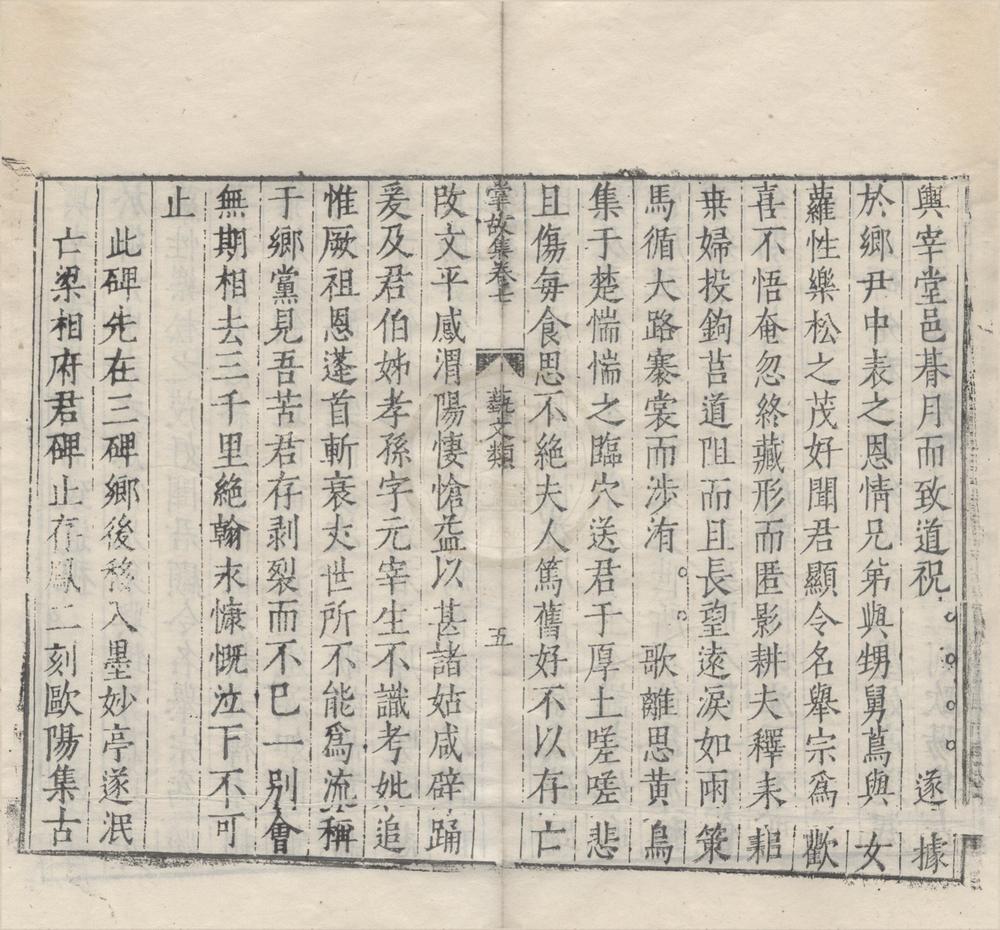 興宰堂邑朞月而致道祝。。。。。遂據
於鄉尹中表之恩情兄弟與甥舅蔦與女
蘿性樂松之茂好聞君顯令名舉宗爲歡
喜不悟奄忽終藏形而匿影耕夫釋耒耜
桒婦投鉤莒道阻而且長望遠淚如雨策
馬循大路褰裳而涉洧。。歌離思黃鳥
集于楚惴惴之臨穴送君于厚土嗟嗟悲
且傷每食思不絶夫人篤舊好不以存亡
掌故集卷七 藝文類 五
改文平慼渭陽悽愴益以甚諸姑咸擗踊
爰及君伯姊孝孫字元宰生不識考妣追
惟厥祖恩蓬首斬衰杖世所不能爲流稱
于鄉黨見吾苦君存剥裂而不已一別會
無期相去三千里絶翰永慷慨泣下不可
止
此碑先在三碑鄉後移入墨妙亭遂泯
亡梁相府君碑止存鳳二刻歐陽集古